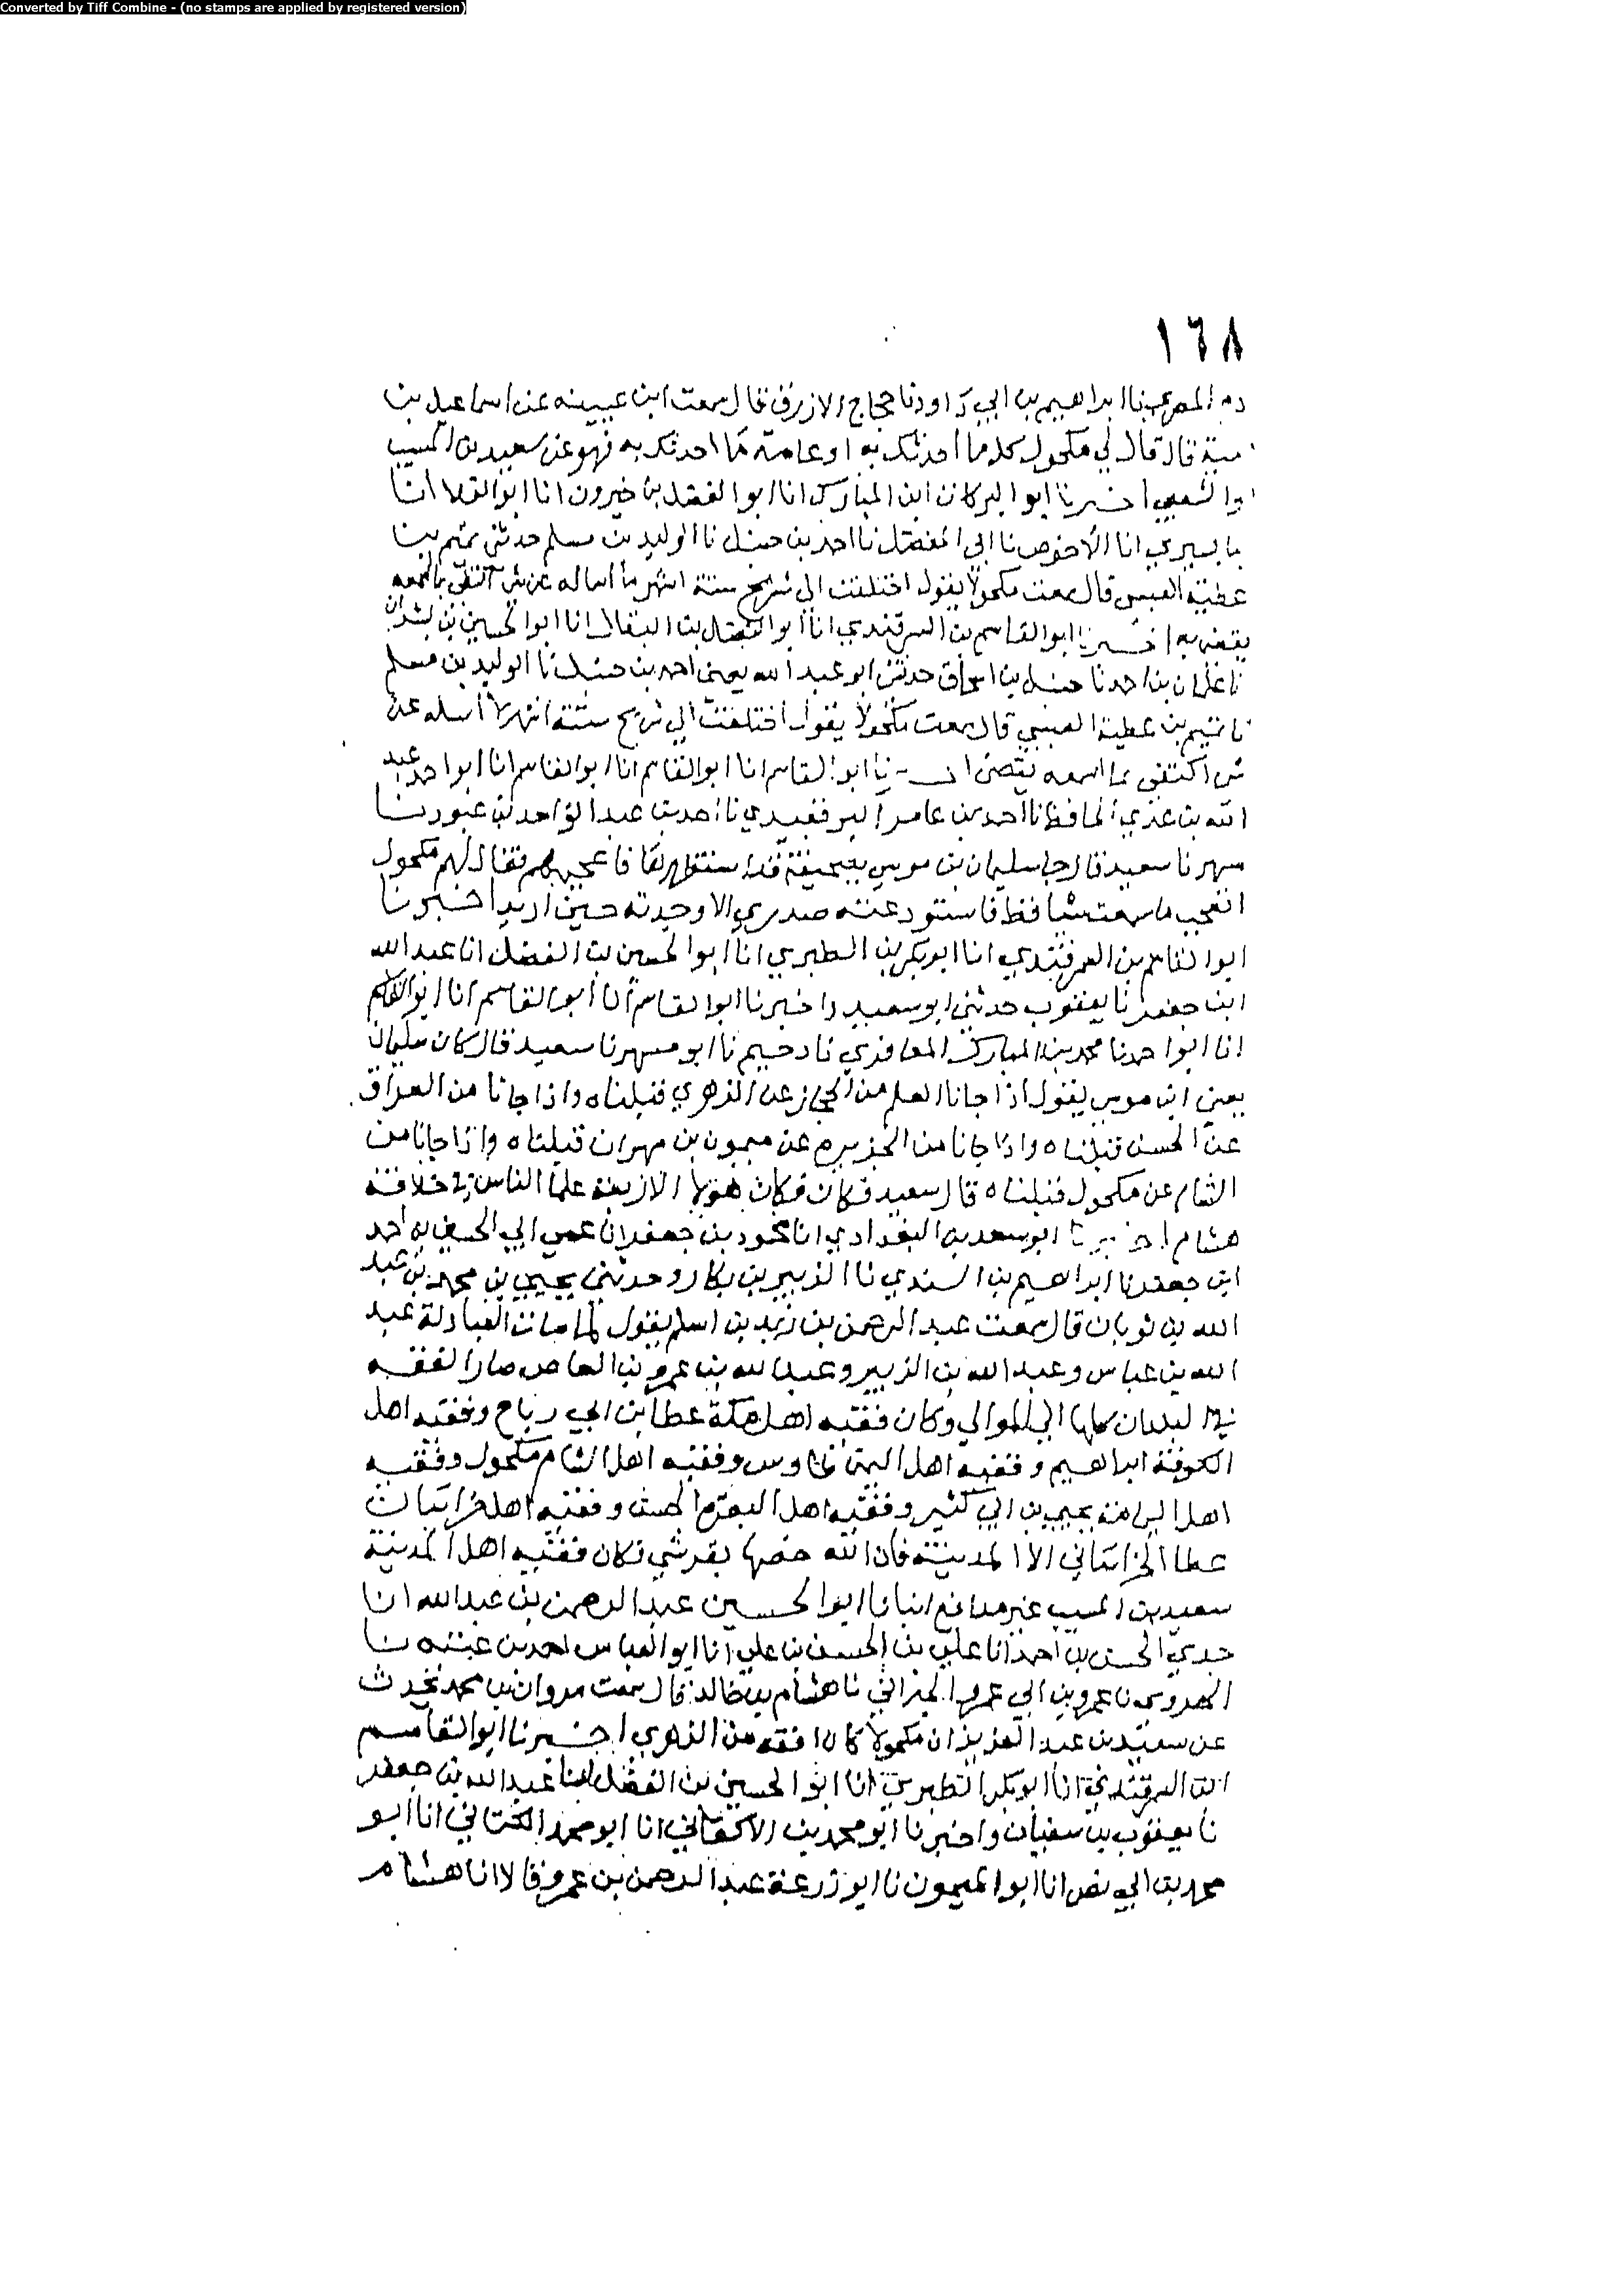 Converted by Tiff Combine - (no stamps are applied by registered version)
١٦٨
المصري نا ابراهيم بن ابي داود نا حجاج الازرق قال سمعت ابن عيينه عن اسماعيل بن
مية قال قال لي مكحول كل ما احدثك به او عامة ما احدثك به فهو عن سعيد بن المسيب
والشعبي اخبرنا ابو البركات ابن المبارك انا ابو الفضل بن خيرون انا ابو العلا انا
بابسيري انا الاحوص نا ابي المفضل نا احمد بن حنبل نا الوليد بن مسلم حدثني تميم بن
عطية العبسي قال سمعت مكحولا يقول اختلفت الى شريح ستة اشهر ما اساله عن شي اكتفي بما اسمعه
يقضي به اخبرنا ابو القاسم بن السمرقندي انا ابو الفضل بن البقال انا ابو الحسين بن بشران
نا عثمان بن احمد نا حنبل بن اسحاق حدثني ابو عبد الله يعني احمد بن حنبل نا الوليد بن مسلم
نا تميم بن عطية العبسي قال سمعت مكحولا يقول اختلفت الى شريح ستة اشهر لا أسله عن
شي اكتفي بما اسمعه يقضي نا ابو القاسم انا ابو القاسم انا ابو القاسم انا ابو احمد عبد
الله بن عدي الحافظ نا احمد بن عامر البرقعيدي نا احمد بن عبد الواحد بن عبود نا
مسهر نا سعيد قال جا سليمان بن موسى بصحيفة قد استظهرها فاعجبهم فقال لهم مكحول
اتعجب ما سمعت شيا قط فاستودعته صدري الا وجدته حين اريد اخبرنا
ابو القاسم بن السمرقندي انا ابو بكر بن الطبري انا ابو الحسين بن الفضل انا عبد الله
ابن جعفر نا يعقوب حدثني ابو سعيد واخبرنا ابو القاسم انا ابو القاسم انا ابو القاسم
انا ابو احمد نا محمد بن المبارك المعافري نا دحيم نا ابو مسهر نا سعيد قال كان سليمان
يعني ابن موسى يقول اذا جانا العلم من الحجاز عن الزهري قبلناه واذا جانا من العراق
عن الحسن قبلناه واذا جانا من الجزيره عن ميمون بن مهران قبلناه واذا جانا من
الشام عن مكحول قبلناه قال سعيد فكان فكان هولا الاربعة علما الناس في خلافة
هشام اخبرنا ابو سعد بن البغدادي انا محمود بن جعفر انا عمي ابي الحسين بن احمد
ابن جعفر نا ابراهيم بن السندي نا الزبير بن بكار وحدثني يحيى بن محمد بن عبد
الله بن ثوبان قال سمعت عبد الرحمن بن زيد بن اسلم يقول لما مات العبادلة عبد
الله بن عباس وعبد الله بن الزبير وعبد الله بن عمرو بن العاص صار الفقه
في البلدان كلها الى الموالي وكان فقيه اهل مكة عطا بن ابي رباح وفقيه اهل
الكوفة ابراهيم وفقيه اهل اليمن طاوس وفقيه اهل الشام مكحول وفقيه
اهل اليمامة يحيى بن ابي كثير وفقيه اهل البصره الحسن وفقيه اهل خراسان
عطا الخراساني الا المدينة فان الله خصها بقرشي فكان فقيه اهل المدينة
سعيد بن المسيب غير مدافع انبانا ابو الحسين عبد الرحمن بن عبد الله انا
جدي الحسن بن احمد انا علي بن الحسن بن علي انا ابو العباس احمد بن عتبة نا
الهروي نا عمرو بن ابي عمرو الحيراني نا هشام بن خالد قال سمعت مروان بن محمد يحدث
عن سعيد بن عبد العزيز ان مكحولا كان افقه من الزهري اخبرنا ابو القاسم
ابن السمرقندي انا ابو بكر الطبري انا ابو الحسين بن الفضل انا عبد الله بن جعفر
نا يعقوب بن سفيان واخبرنا ابو محمد بن الاكفاني انا ابو محمد الكتاني انا ابو
محمد بن ابي نصر انا ابو الميمون نا ابو زرعة عبد الرحمن بن عمرو قالا انا هشام